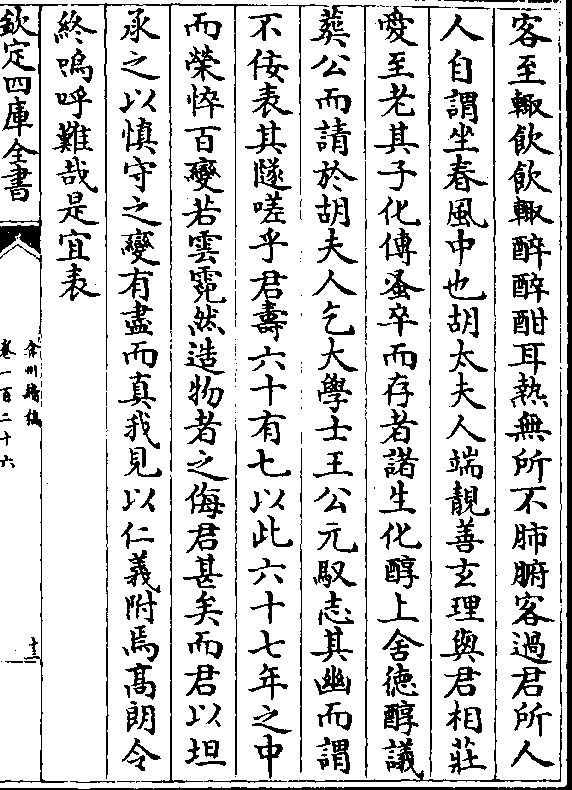 客至輙飲飲輙醉醉酣耳熱無所不肺腑客過君所人
人自謂坐春風中也胡太夫人端靚善玄理與君相莊
愛至老其子化傳蚤卒而存者諸生化醇上舍徳醇議
葬公而請於胡夫人乞大學士王公元馭志其幽而謂
不佞表其隧嗟乎君壽六十有七以此六十七年之中
而榮悴百變若雲霓然造物者之侮君甚矣而君以坦
承之以慎守之變有盡而真我見以仁義附焉髙朗令
終嗚呼難哉是宜表
欽定四庫全書
弇州續稿
卷一百二十六
十三